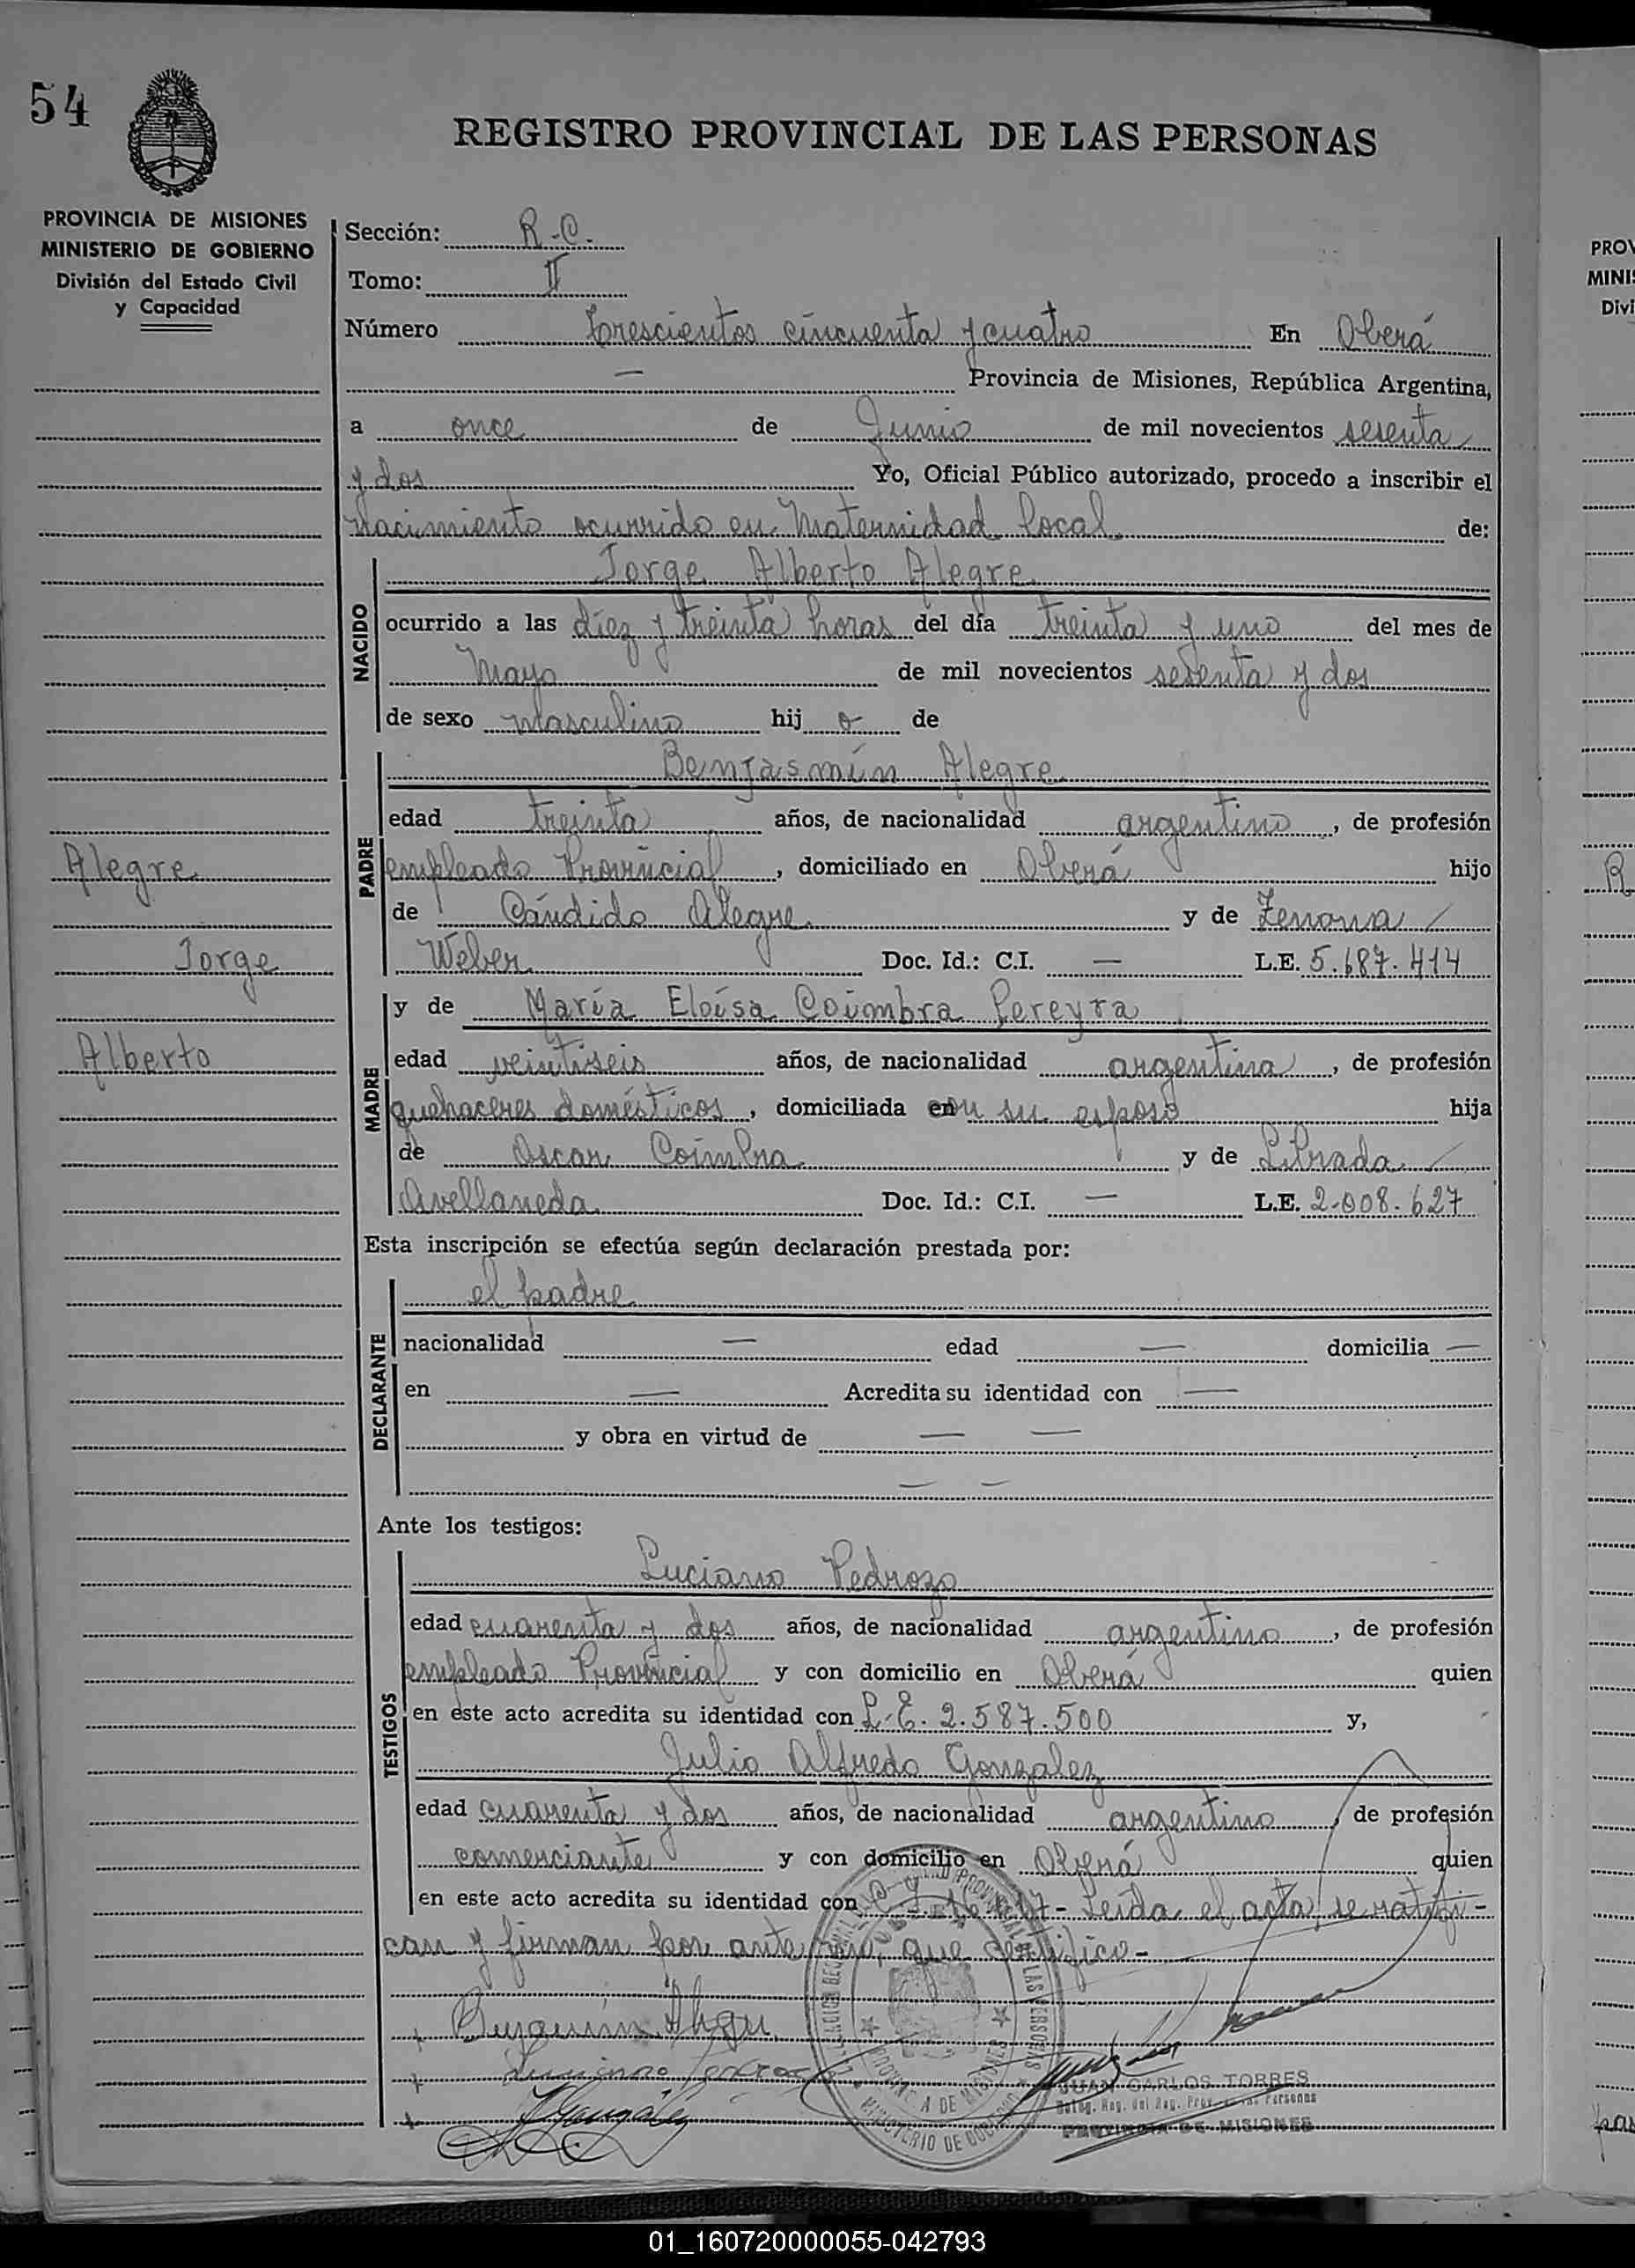 54
REGISTRO PROVINCIAL DE LAS PERSONAS
PROVINCIA DE MISIONES
MINISTERIO DE GOBIERNO
División del Estado Civil
y Capacidad
Sección: R.C.
Tomo: II
Número trescientos cincuenta y cuatro En Oberá
— Provincia de Misiones, República Argentina,
a once de Junio de mil novecientos sesenta
y dos Yo, Oficial Público autorizado, procedo a inscribir el
nacimiento ocurrido en Maternidad Local de:
NACIDO
Jorge Alberto Alegre
ocurrido a las diez y treinta horas del día treinta y uno del mes de
Mayo de mil novecientos sesenta y dos
de sexo masculino hij o de
PADRE
Benjasmín Alegre
edad treinta años, de nacionalidad argentino, de profesión
empleado Provincial, domiciliado en Oberá hijo
de Cándido Alegre y de Zenona
Weber Doc. Id.: C.I. — L.E. 5.687.414
Alegre
Jorge
Alberto
MADRE
y de María Eloísa Coimbra Pereyra
edad veintiseis años, de nacionalidad argentina, de profesión
quehaceres domésticos, domiciliada con su esposo hija
de Oscar Coimbra y de Librada
Avellaneda Doc. Id.: C.I. — L.E. 2.008.627
Esta inscripción se efectúa según declaración prestada por:
DECLARANTE
el padre
nacionalidad — edad — domicilia —
en — Acredita su identidad con —
y obra en virtud de — —
— —
Ante los testigos:
TESTIGOS
Luciano Pedrozo
edad cuarenta y dos años, de nacionalidad argentino, de profesión
empleado Provincial y con domicilio en Oberá quien
en este acto acredita su identidad con L.E. 2.587.500 y,
Julio Alfredo Gonzalez
edad cuarenta y dos años, de nacionalidad argentino, de profesión
comerciante y con domicilio en Oberá quien
en este acto acredita su identidad con Leida el acta, se ratifi-
can y firman por ante mí, que certifico-
Benjamín Alegre
Luciano Pedrozo
J. González
JUAN CARLOS TORRES
PROVINCIA DE MISIONES
PROVINCIA DE MISIONES
MINISTERIO DE GOBIERNO
PROV
MINIS
Divi
01_160720000055-042793